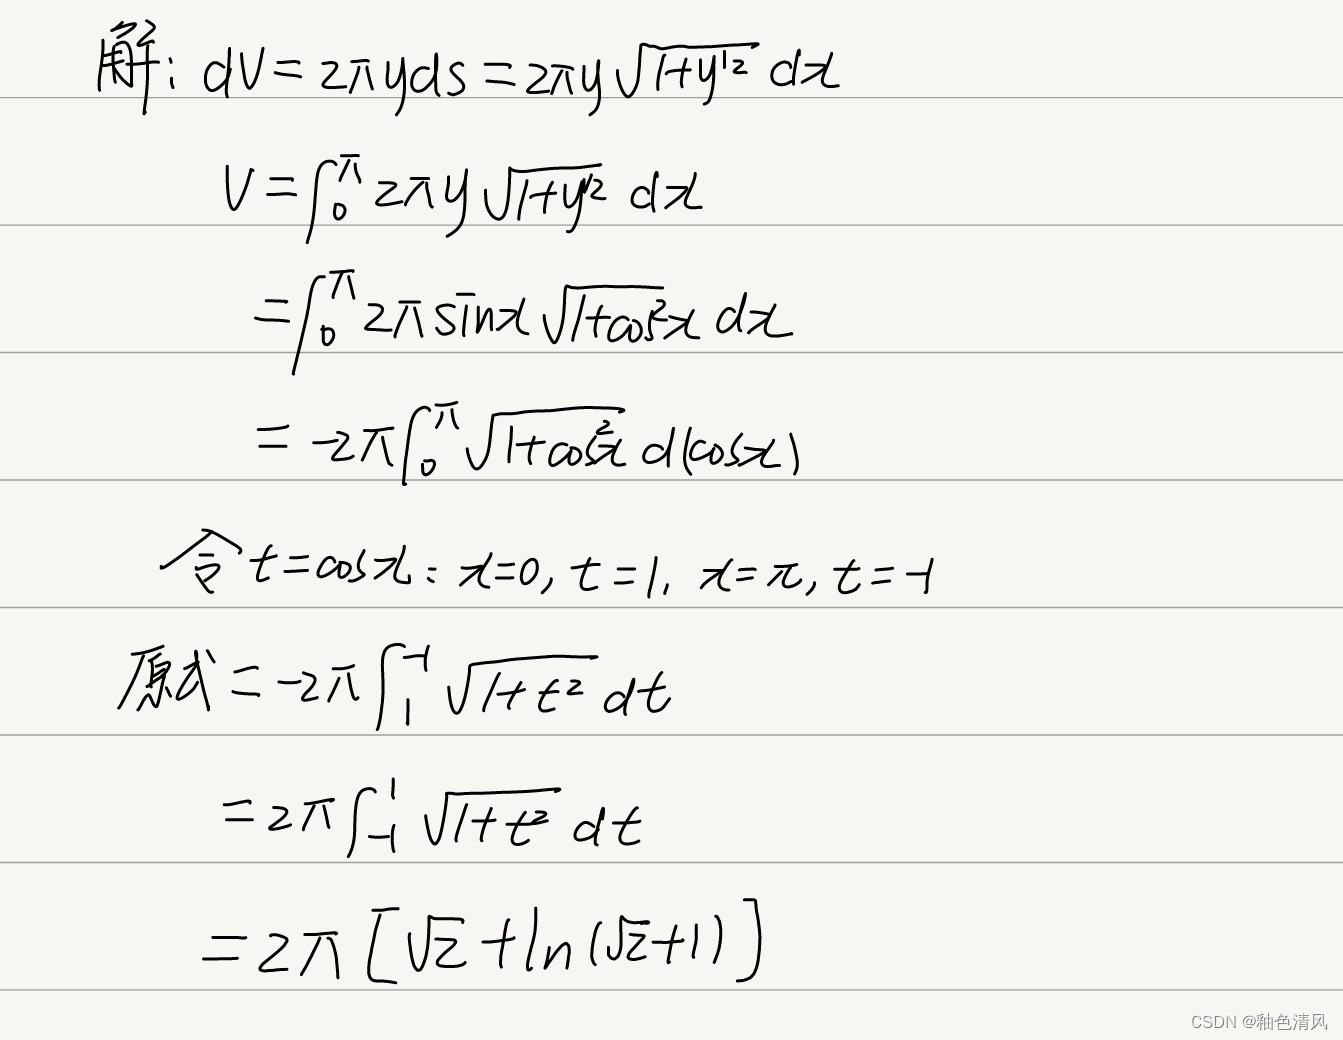 解: dV = 2πyds = 2πy√(1+y'²) dx
V = ∫₀^π 2πy√(1+y'²) dx
= ∫₀^π 2π sinx √(1+cos²x) dx
= -2π ∫₀^π √(1+cos²x) d(cosx)
令 t = cosx : x=0, t=1, x=π, t=-1
原式 = -2π ∫₁^-1 √(1+t²) dt
= 2π ∫₋₁^1 √(1+t²) dt
= 2π [√2 + ln(√2+1)]
CSDN @釉色清风